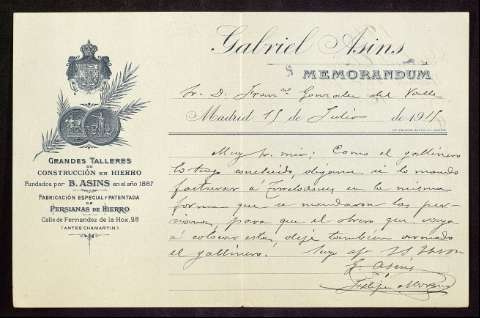 Gabriel Asins
MEMORANDUM
GRANDES TALLERES
DE
CONSTRUCCIÓN EN HIERRO
Fundados por B. ASINS en el año 1867
FABRICACIÓN ESPECIAL Y PATENTADA
DE
PERSIANAS DE HIERRO
Calle de Fernandez de la Hoz, 98
(ANTES CHAMARTIN)
Sr. D. Gonzalez del Valle
Madrid 15 de Julio de 191
Muy Sr. mio: Como el gallinero
lo tengo concluido, digame si lo mando
facturar á en la misma
forma que se mandaron las per-
sianas, para que el obrero que vaya
á colocar estas, deje tambien armado
el gallinero. Suyo af
G. Asins
Felipe